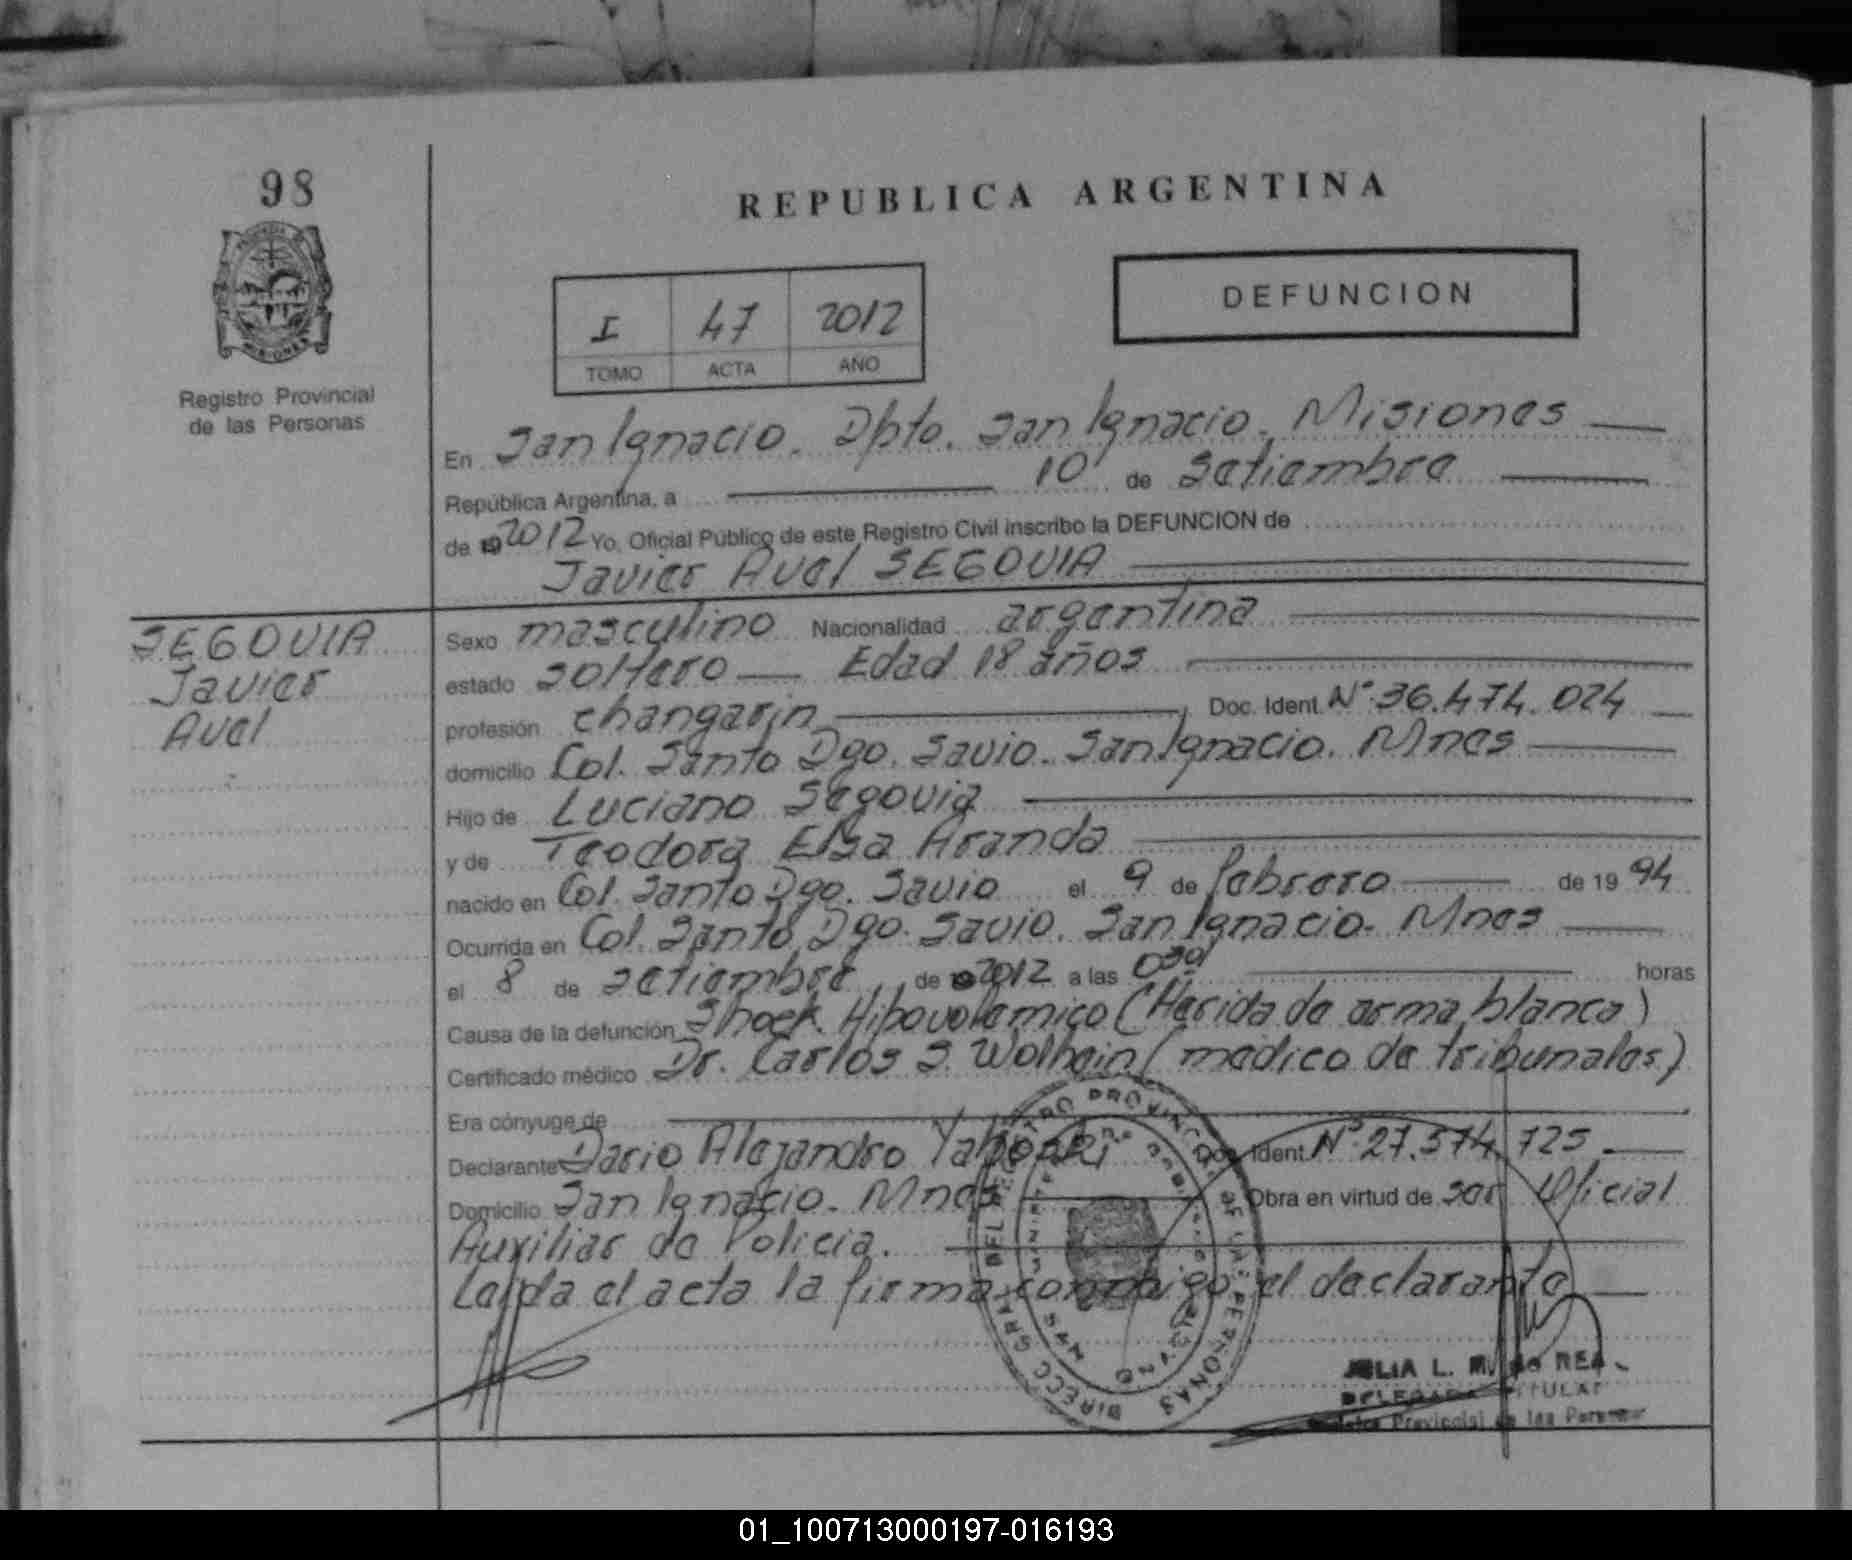 98
REPUBLICA ARGENTINA
DEFUNCION
I 47 2012
TOMO ACTA AÑO
Registro Provincial
de las Personas
En San Ignacio. Dpto. San Ignacio. Misiones
República Argentina, a 10 de Setiembre
de 19 2012 Yo, Oficial Público de este Registro Civil inscribo la DEFUNCION de
Javier Avel SEGOVIA
SEGOVIA
Javier
Avel
Sexo masculino Nacionalidad argentina
estado soltero Edad 18 años
profesión changarin Doc. Ident. Nº 36.474.024
domicilio Col. Santo Dgo. Savio. San Ignacio. Mnes
Hijo de Luciano Segovia
y de Teodora Elsa Aranda
nacido en Col. Santo Dgo. Savio el 9 de febrero de 19 94
Ocurrida en Col. Santo Dgo. Savio. San Ignacio. Mnes
el 8 de setiembre de 2012 a las horas
Causa de la defunción Shock Hipovolemico (Herida de arma blanca)
Certificado médico Dr. Carlos S. Wolhein (medico de tribunales)
Era cónyuge de
Declarante Dario Alejandro Doc. Ident. Nº 27.574.725
Domicilio San Ignacio. Mnes Obra en virtud de ser Oficial
Auxiliar de Policia.
Leida el acta la firma conmigo el declarante
JULIA L. M. de REA
DELEGADA TITULAR
Registro Provincial de las Personas
01_100713000197-016193